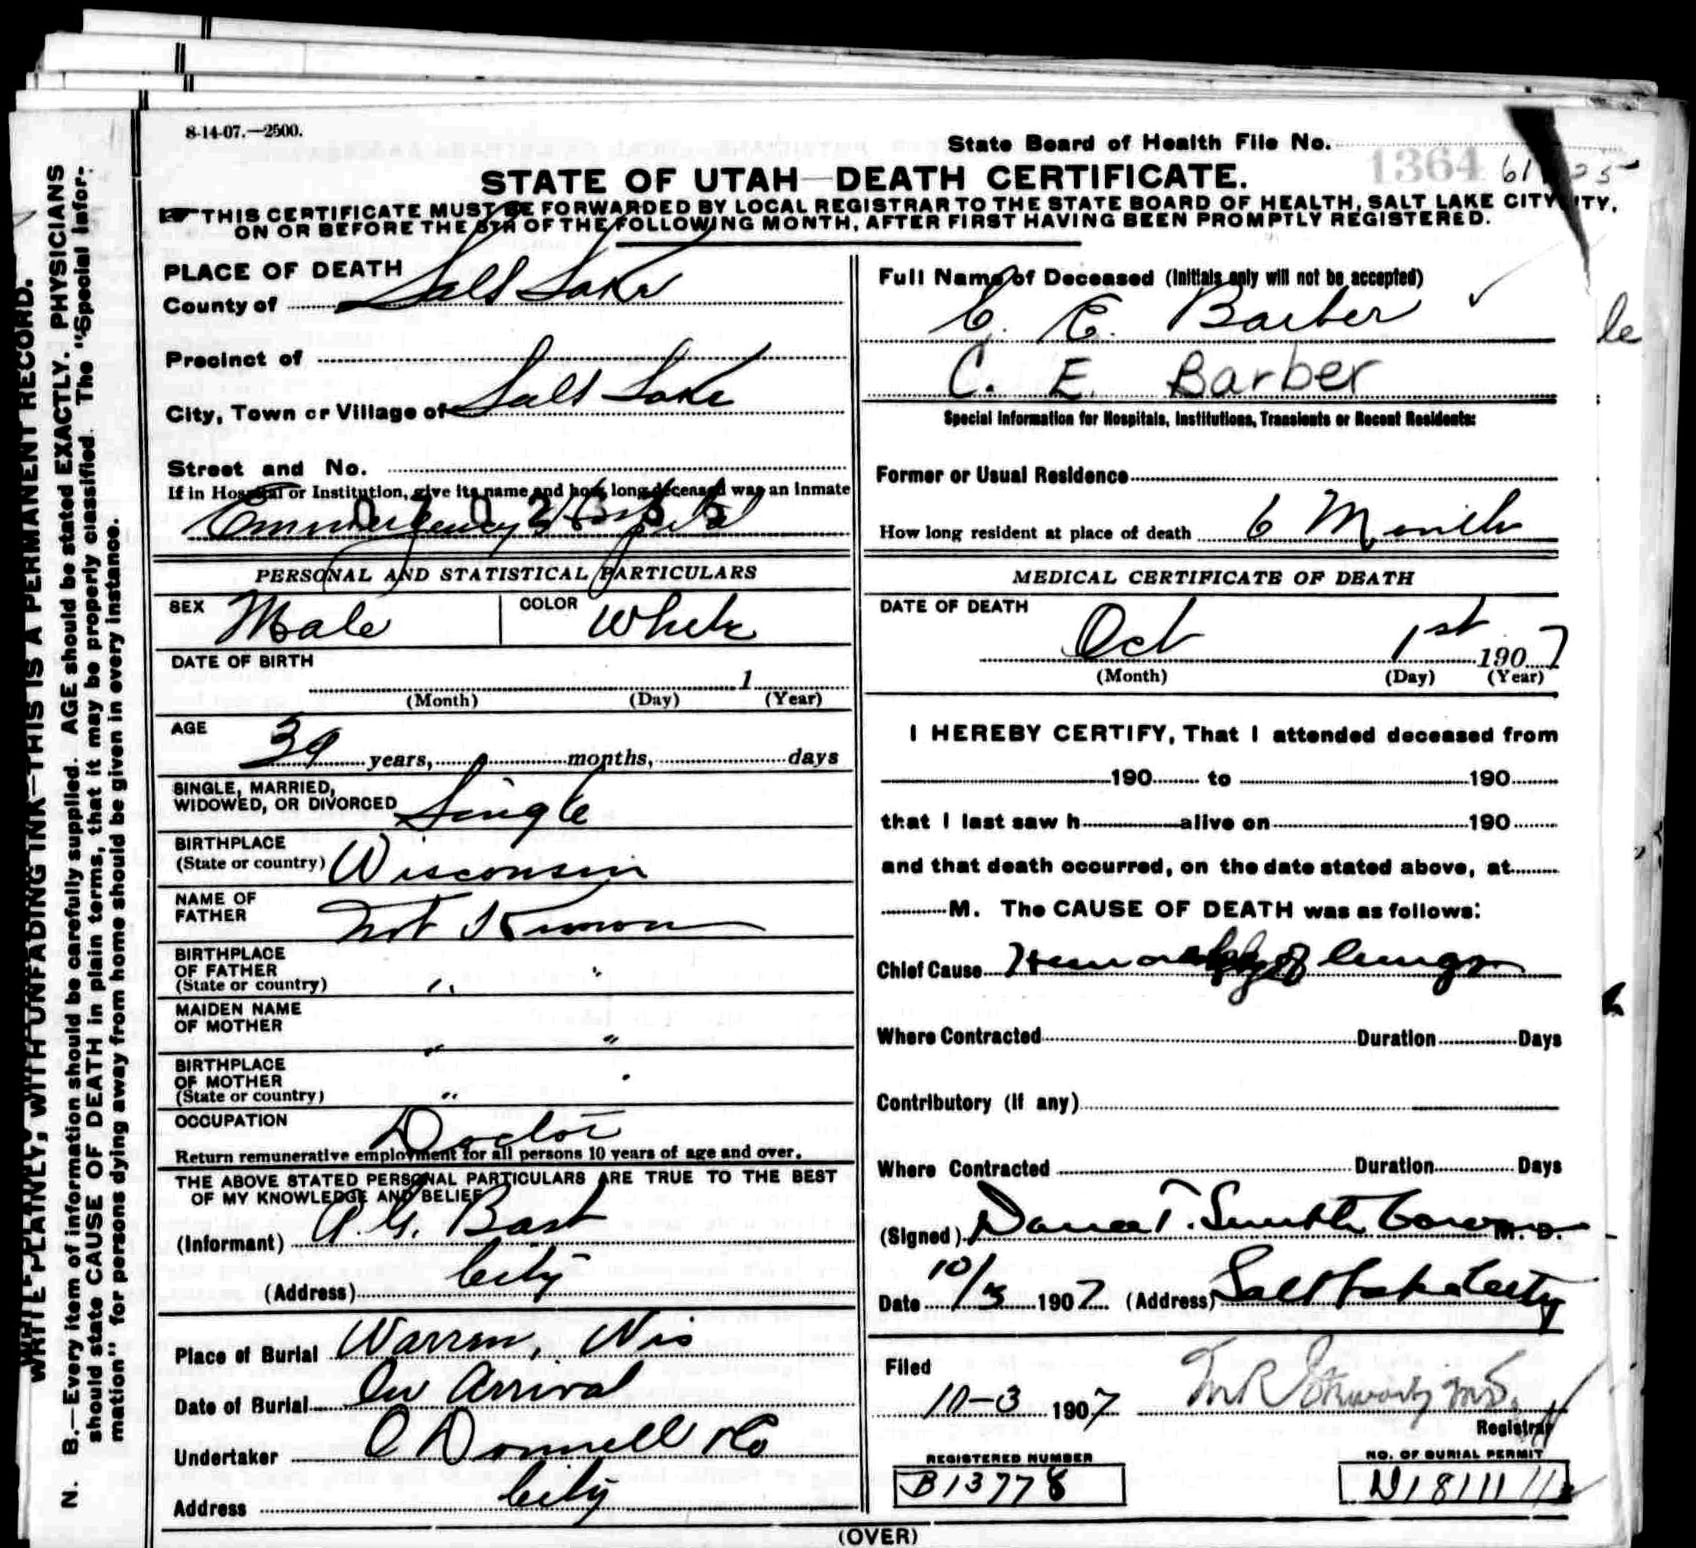 8-14-07.—2500.
State Board of Health File No. 1364
STATE OF UTAH—DEATH CERTIFICATE.
THIS CERTIFICATE MUST BE FORWARDED BY LOCAL REGISTRAR TO THE STATE BOARD OF HEALTH, SALT LAKE CITY,
ON OR BEFORE THE 5TH OF THE FOLLOWING MONTH, AFTER FIRST HAVING BEEN PROMPTLY REGISTERED.
WRITE PLAINLY, WITH UNFADING INK—THIS IS A PERMANENT RECORD.
N. B.—Every item of information should be carefully supplied. AGE should be stated EXACTLY. PHYSICIANS
should state CAUSE OF DEATH in plain terms, that it may be properly classified. The "Special Infor-
mation" for persons dying away from home should be given in every instance.
PLACE OF DEATH
County of Salt Lake
Precinct of
City, Town or Village of Salt Lake
Street and No.
If in Hospital or Institution, give its name and how long deceased was an inmate
Emmergency Hospital
PERSONAL AND STATISTICAL PARTICULARS
SEX Male COLOR White
DATE OF BIRTH
1
(Month) (Day) (Year)
AGE 39 years, months, days
SINGLE, MARRIED,
WIDOWED, OR DIVORCED Single
BIRTHPLACE
(State or country) Wisconsin
NAME OF
FATHER Not Known
BIRTHPLACE
OF FATHER "
(State or country) "
MAIDEN NAME
OF MOTHER
" "
BIRTHPLACE
OF MOTHER
(State or country) "
OCCUPATION
Doctor
Return remunerative employment for all persons 10 years of age and over.
THE ABOVE STATED PERSONAL PARTICULARS ARE TRUE TO THE BEST
OF MY KNOWLEDGE AND BELIEF
(Informant) A. G. Bast
(Address) City
Place of Burial Warren, Wis
Date of Burial On Arrival
Undertaker O Donnell & Co
Address City
Full Name of Deceased (Initials only will not be accepted)
C. E. Barber
C. E. Barber
Special Information for Hospitals, Institutions, Transients or Recent Residents:
Former or Usual Residence
How long resident at place of death 6 Month
MEDICAL CERTIFICATE OF DEATH
DATE OF DEATH
Oct 1st 1907
(Month) (Day) (Year)
I HEREBY CERTIFY, That I attended deceased from
190 to 190
that I last saw h alive on 190
and that death occurred, on the date stated above, at
M. The CAUSE OF DEATH was as follows:
Chief Cause of lungs
Where Contracted Duration Days
Contributory (if any)
Where Contracted Duration Days
(Signed) Dana T. Smith M. D.
Date 10/3 1907 (Address) Salt Lake City
Filed
10-3 1907
Registrar
REGISTERED NUMBER
B13778
NO. OF BURIAL PERMIT
(OVER)